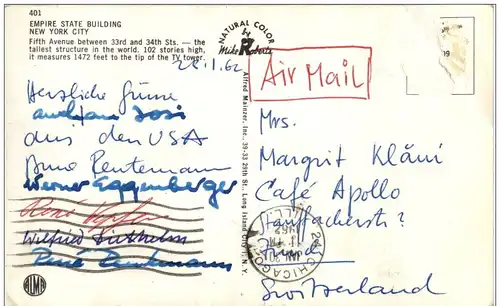 401
EMPIRE STATE BUILDING
NEW YORK CITY
Fifth Avenue between 33rd and 34th Sts. — the
tallest structure in the world. 102 stories high,
it measures 1472 feet to the tip of the TV tower.
NATURAL COLOR
Mike Roberts
28.1.62
Herzliche Grüsse
aus den USA
Arno Rentemann
Werner Eggenberger
René
Wilfried
René Rentemann
ALMA
Alfred Mainzer, Inc., 39-33 29th St., Long Island City 1, N. Y.
Air Mail
Mrs.
Margrit Kläui
Café Apollo
Stauffacherstr ?
Switzerland
CHICAGO
ILL.
1962